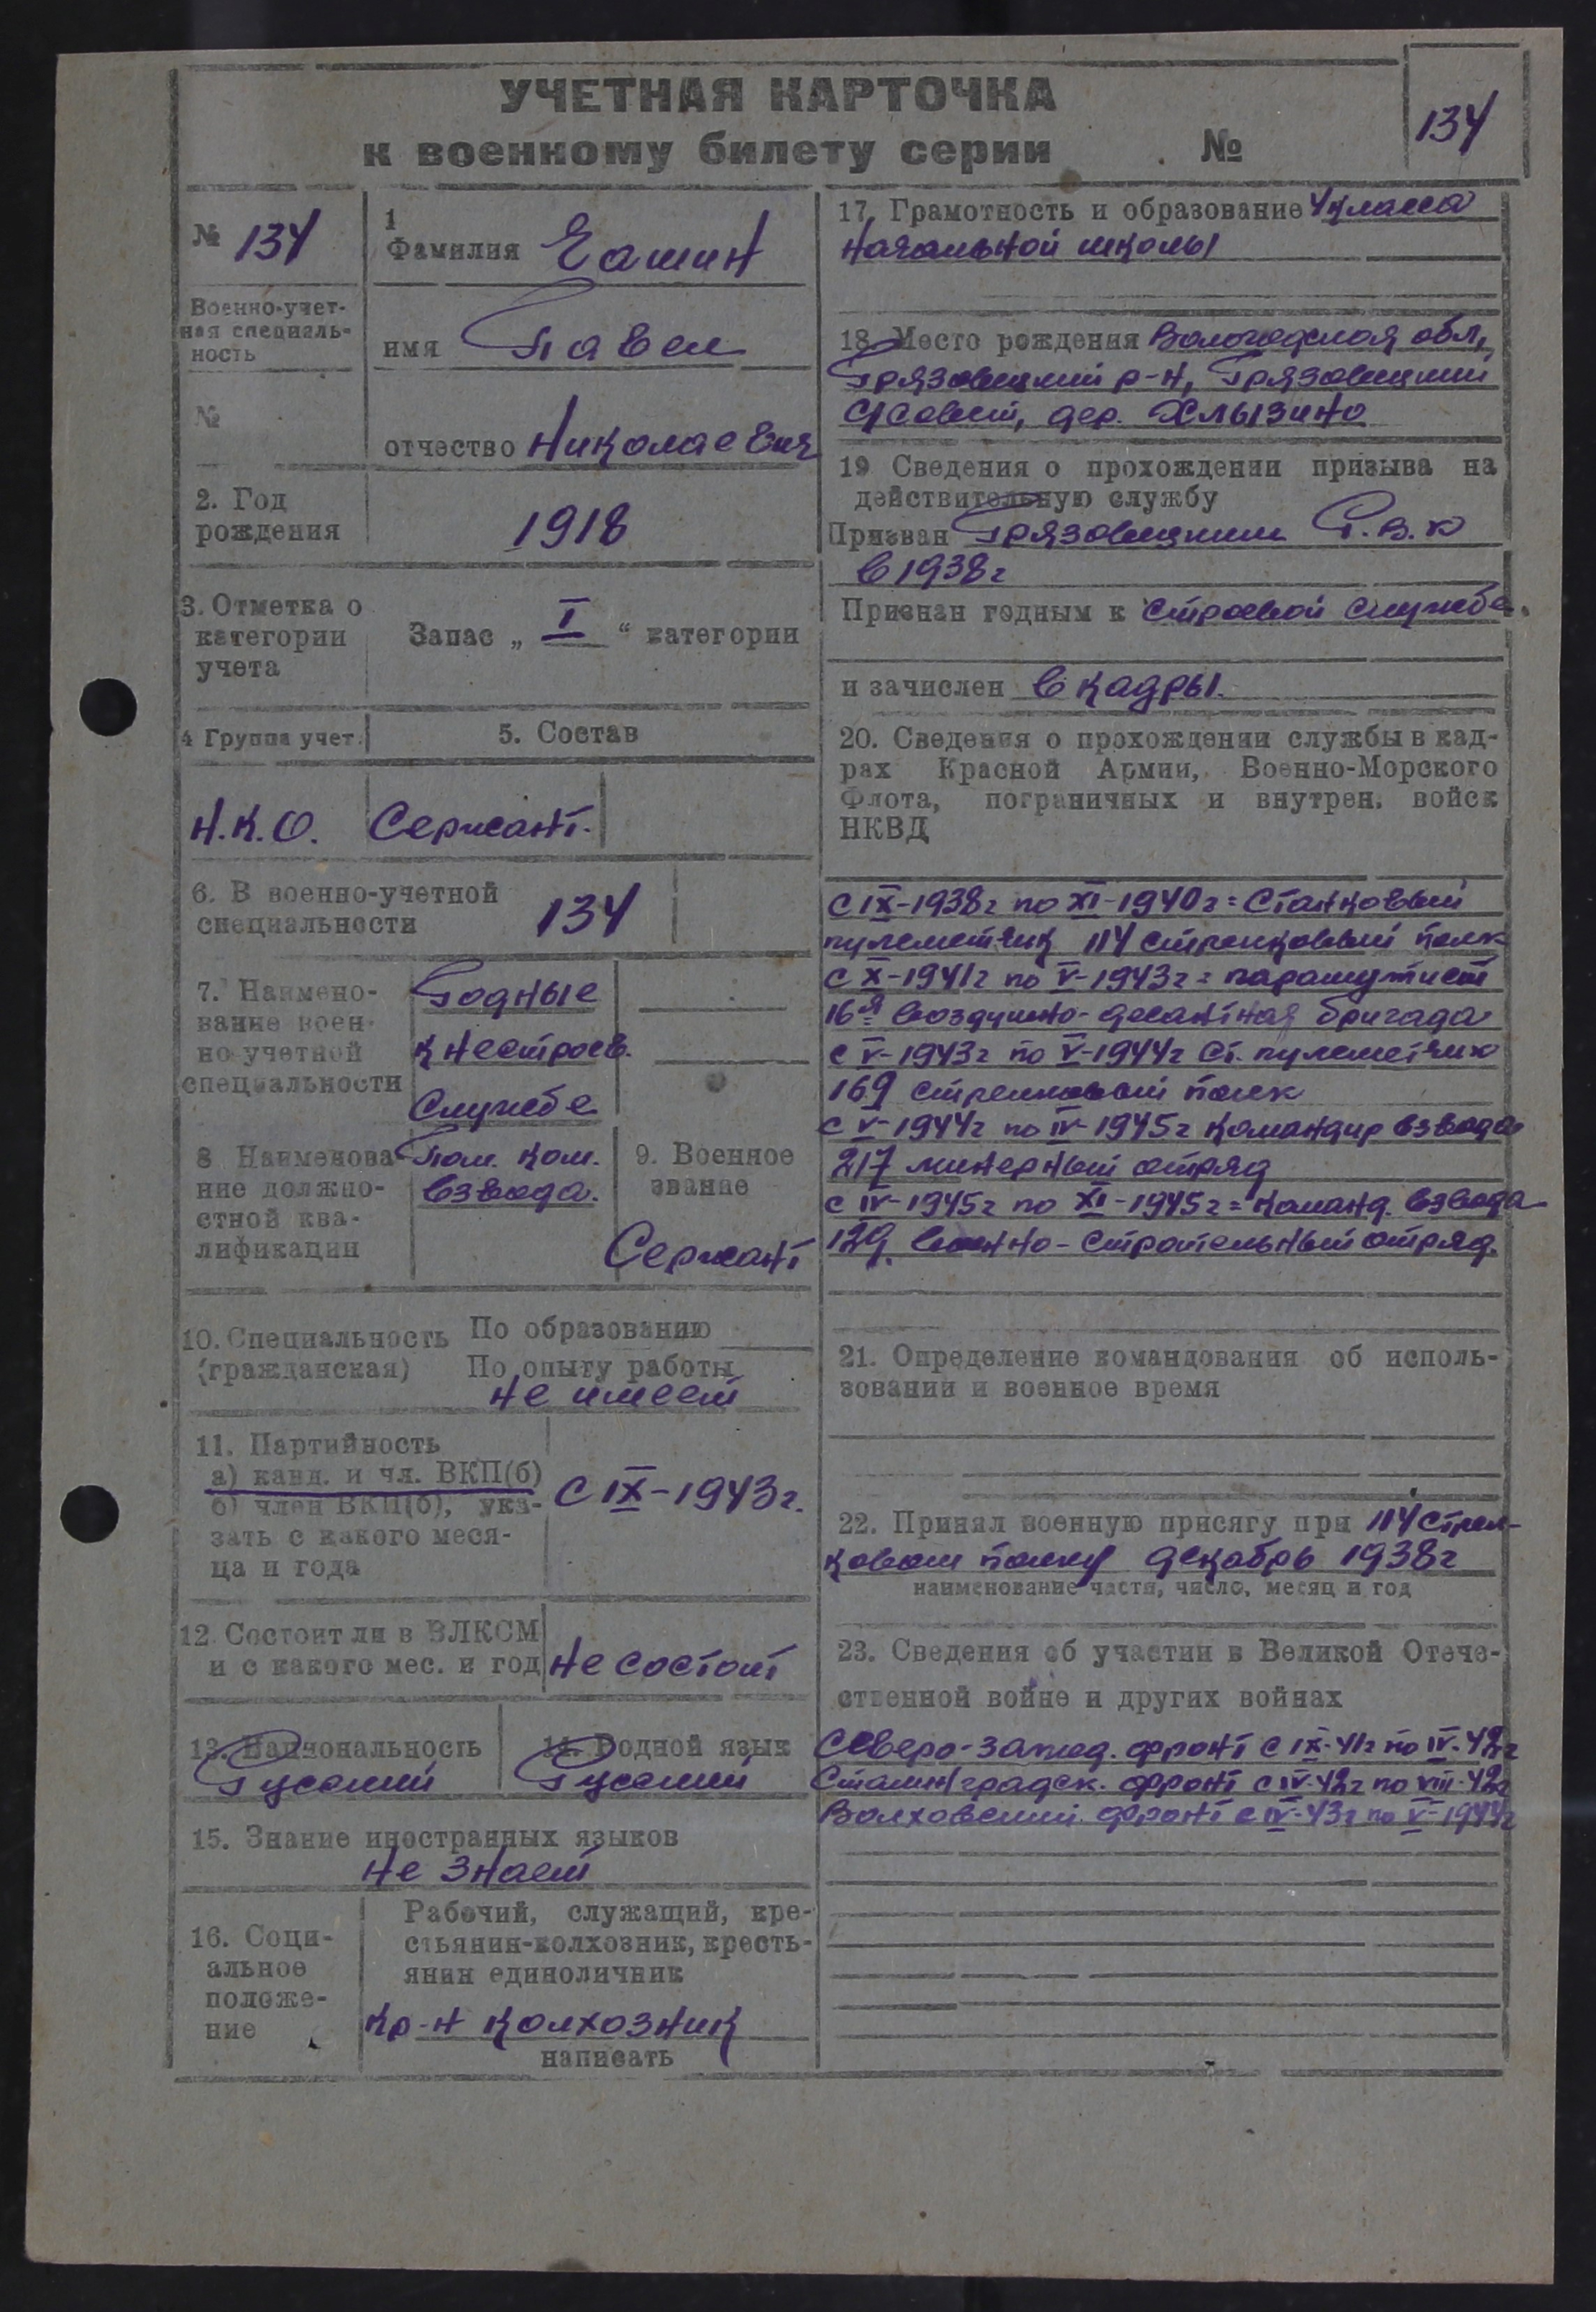 УЧЕТНАЯ КАРТОЧКА
к военному билету серии №
134
№ 134
1
Фамилия Ешин
Военно-учет-
ная специаль-
ность
имя Павел
№
отчество Николаевич
2. Год
рождения
1918
3. Отметка о
категории
учета
Запас „ I “ категории
4 Группа учет.
5. Состав
Н.К.О.
Сержант.
6. В военно-учетной
специальности
134
7. Наимено-
вание воен-
но учетной
специальности
Годные
к нестроев.
службе
8 Наименова
ние должно-
стной ква-
лификации
Пом. ком.
взвода.
9. Военное
звание
Сержант
10. Специальность
(гражданская)
По образованию
По опыту работы
не имеет
11. Партийность
а) канд. и чл. ВКП(б)
б) член ВКП(б), ука-
зать с какого меся-
ца и года
С IX-1943г.
12 Состоит ли в ВЛКСМ
и с какого мес. и год
не состоит
13. Национальность
Русский
14. Родной язык
Русский
15. Знание иностранных языков
не знает
16. Соци-
альное
положе-
ние
Рабочий, служащий, кре-
стьянин-колхозник, кресть-
янин единоличник
кр-н колхозник
написать
17. Грамотность и образование 4 класса
начальной школы
18. Место рождения Вологодская обл,
Грязовецкий р-н, Грязовецкий
с/совет, дер. Хлызино
19 Сведения о прохождении призыва на
действительную службу
Призван Грязовецким Р.В.К
в 1938г
Признан годным к строевой службе.
и зачислен в кадры.
20. Сведения о прохождении службы в кад-
рах Красной Армии, Военно-Морского
Флота, пограничных и внутрен. войск
НКВД
с IX-1938г по XI-1940г = Станковый
пулеметчик 114 стрелковый полк
с X-1941г по V-1943г = парашутист
16я воздушно-десантная бригада
с V-1943г по V-1944г ст. пулеметчик
169 стрелковый полк
с V-1944г по IV-1945г командир взвода
217 минерный отряд
с IV-1945г по XI-1945г = команд. взвода
129. военно-строительный отряд.
21. Определение командования об исполь-
зовании и военное время
22. Принял военную присягу при 114 стрел-
ковом полку декабрь 1938г
наименование части, число, месяц и год
23. Сведения об участии в Великой Отече-
ственной войне и других войнах
Северо-Запад. фронт с IX-41г по IV-42г
Сталинградск. фронт с IV-42г по VIII-42г
Волховский фронт с IV-43г по V-1944г